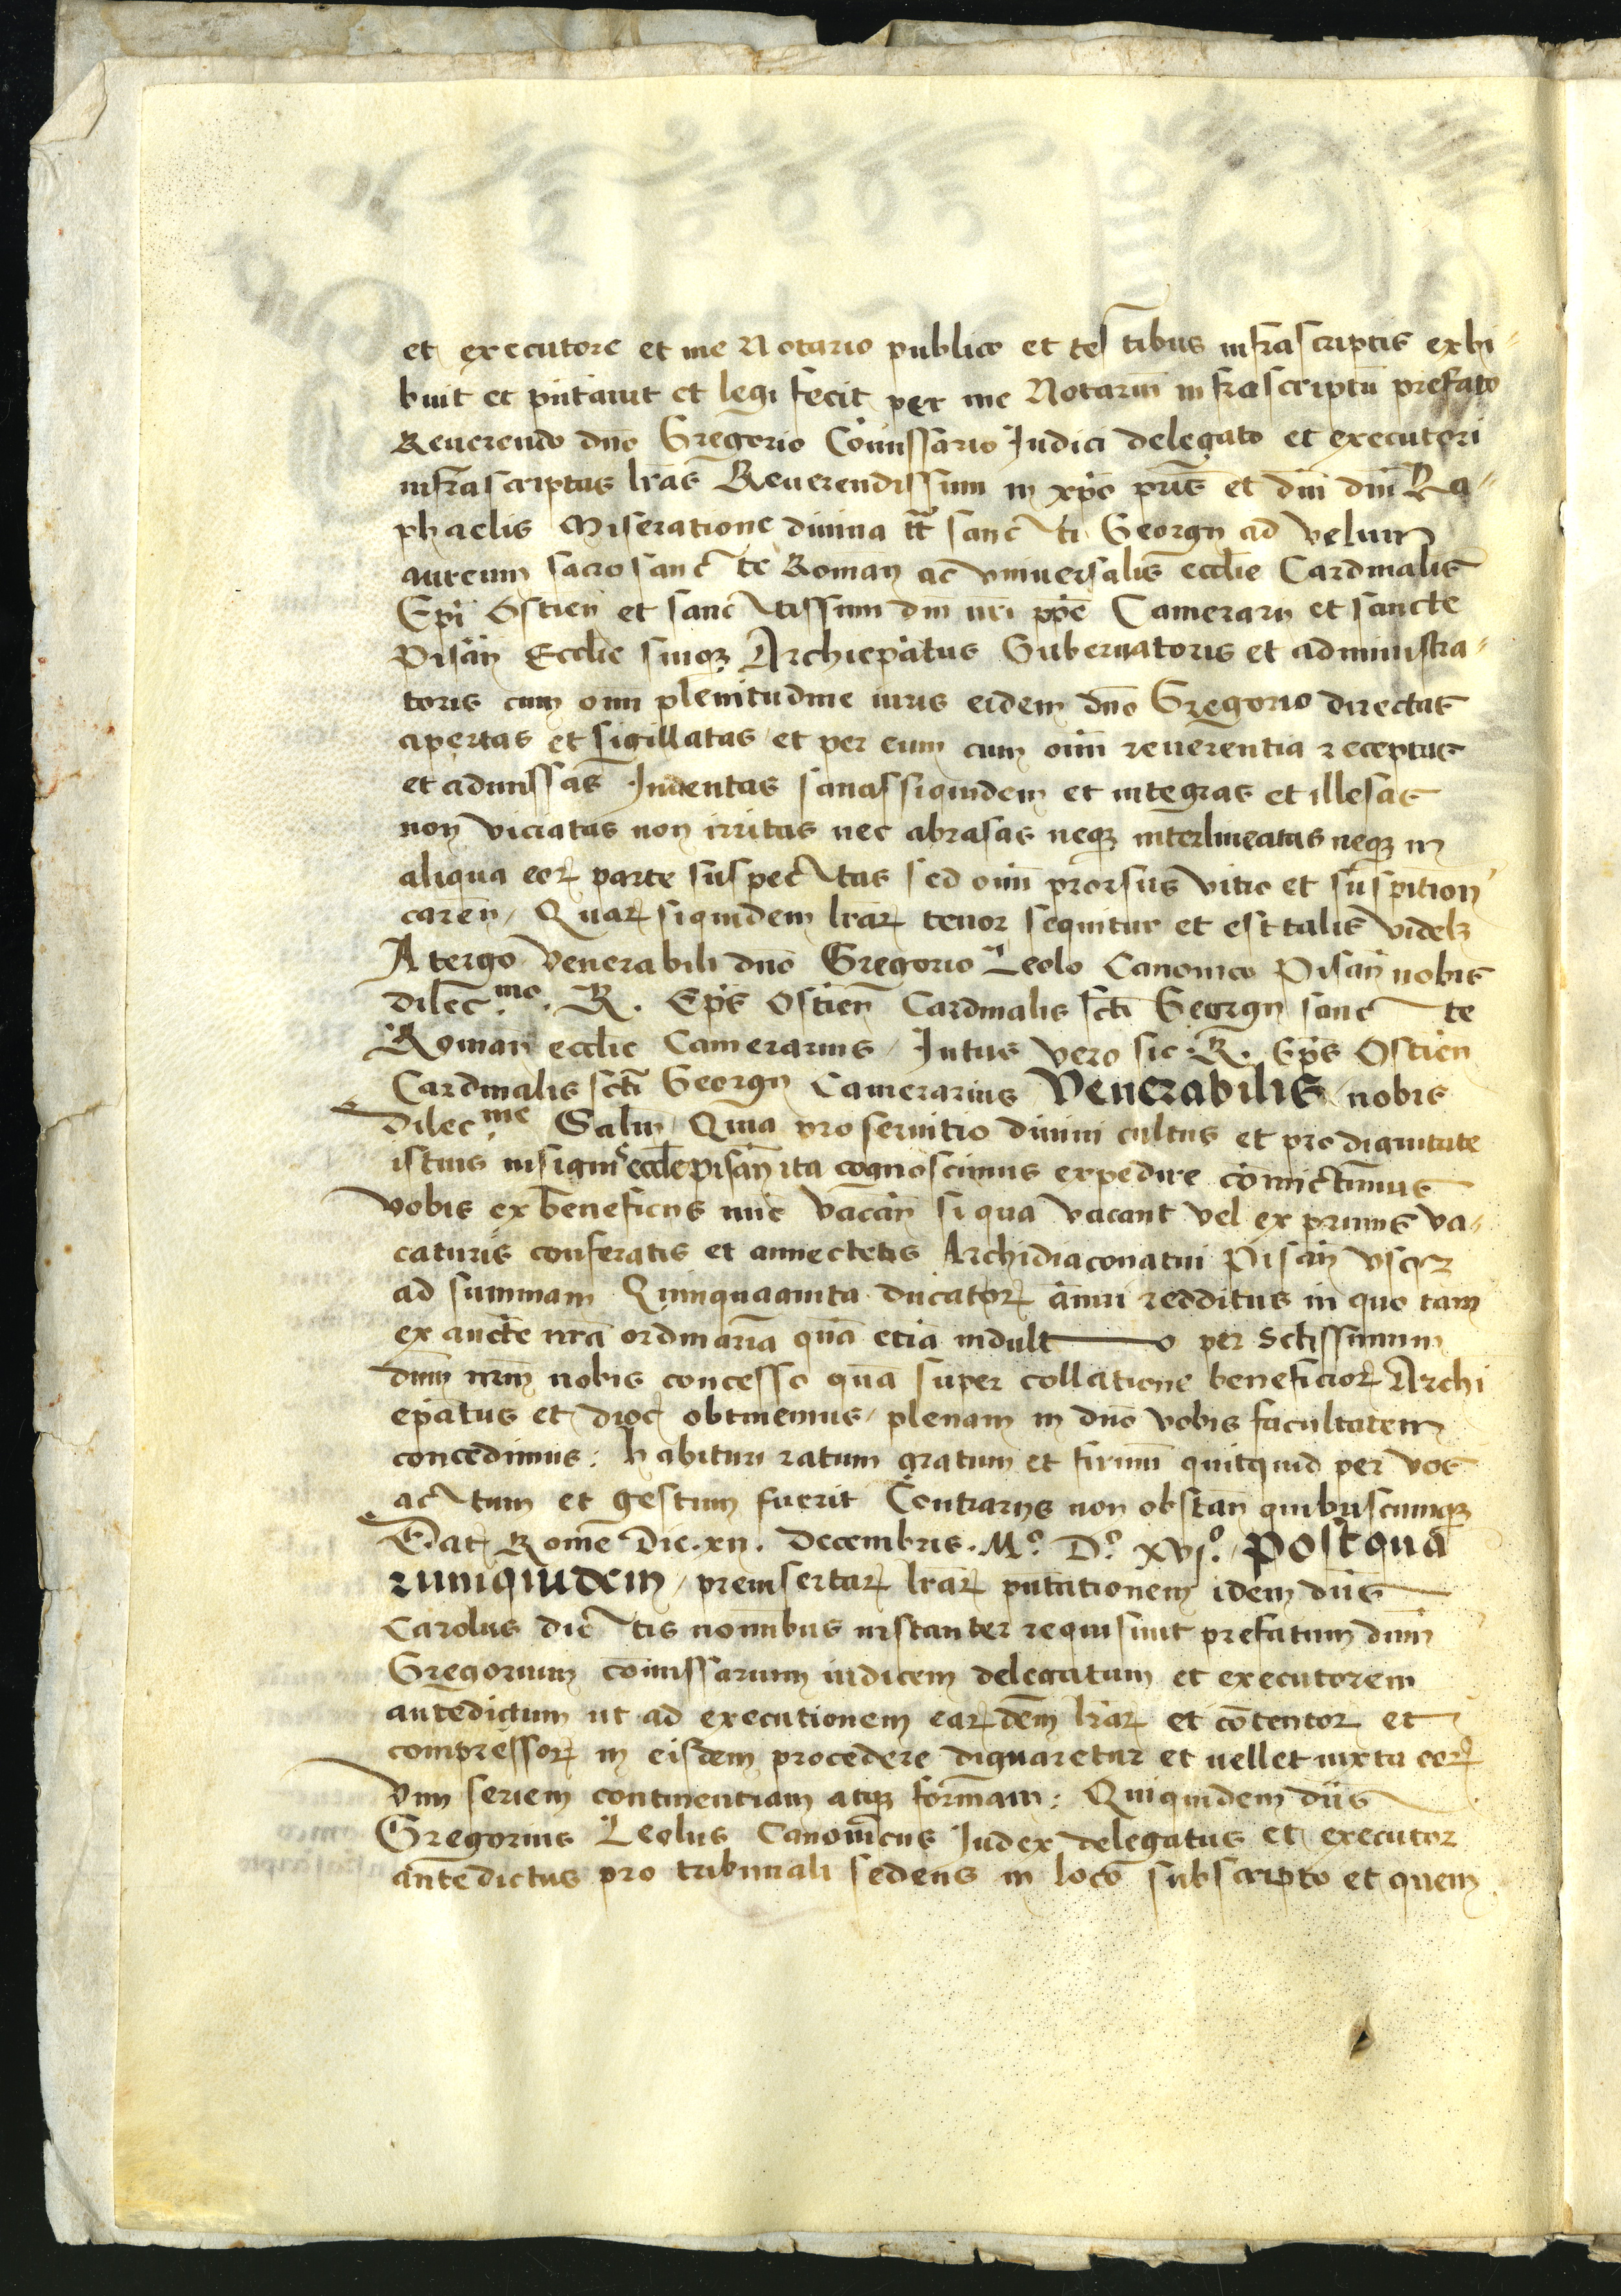 et executore et me Notario publico et testibus infrascriptis exhi-
buit et pñtavit et legi fecit per me Notariũ infrascriptũ prefato
Reverendo dño Gregorio Cõmissario Judici delegato et executori
infrascriptas lr̃as Reverendissimi in xp̃o pr̃is et dñi dñi Ra-
phaelis Miseratione divina tt̃ sancti Georgij ad velum
aureum sacrosancte Romañ ac universalis eccl̃ie Cardinalis
Ep̃i Ostieñ et sanctissimi dñi nr̃i pp̃e Camerarij et sancte
Pisañ Eccl̃ie suiq₃ Archiep̃atus Gubernatoris et administra-
toris cum om̃i plenitudine iuris eidem dño Gregorio directas
apertas et sigillatas et per eum cum om̃i reverentia receptas
et admissas Inventas sanas siquidem et integras et illesas
non viciatas non irritas nec abrasas neq₃ interlineatas neq₃ in
aliqua eoꝝ parte suspectas sed om̃i prorsus vitio et suspition̄
careñ, Quaꝝ siquidem lr̃aꝝ tenor sequitur et est talis videl₃
A tergo Venerabili dño Gregorio Leolo Canonico Pisañ nobis
dilec.mo R. Ep̃s Ostieñ Cardinalis sc̃ti Georgij sancte
Romañ eccl̃ie Camerarius, Intus vero sic R. Ep̃s Ostieñ
Cardinalis sc̃ti Georgij Camerarius Venerabilis nobis
dilec.me Salu̅, Quia pro servitio divini cultus et pro dignitate
istius insignis eccl̃e pisañ ita cognoscimus expedire cõmictimus
vobis ex beneficijs nũc vacañ si qua vacant vel ex primis va-
caturis conferatis et annectetis Archidiaconatui Pisañ usq₃
ad summam Quinquaginta ducatoꝝ ãnui redditus in quo tam
ex aucte nr̃a ordinaria quã etiã indulto per Sc̃tissimum
dñm nr̃m nobis concesso quã super collatione beneficioꝝ Archi
ep̃atus et dioc̃ obtinemus, plenam in dño vobis facultatem
concedimus: habituri ratum gratum et firmũ quitquid per vos
actum et gestum fuerit Contrarijs non obstañ quibuscumq₃
Dat̃ Rome Die .xij. Decembris. M.º D.º xvj.º, Postqua
rumquidem, preinsertaꝝ lr̃aꝝ pñtationem idem dñs
Carolus dictis nom̃ibus instanter requisiuit prefatum dñm
Gregorium cõmissarium iudicem delegatum et executorem
antedictum ut ad executionem eaꝝdem lr̃aꝝ et cõtentoꝝ et
compressoꝝ in eisdem procedere dignaretur et vellet iuxta eoꝝ
vim seriem continentiam atq₃ formam: Quiquidem dñs
Gregorius Leolus Canonicus Iudex delegatus et executor
antedictus pro tribunali sedens in loco subscripto et quem